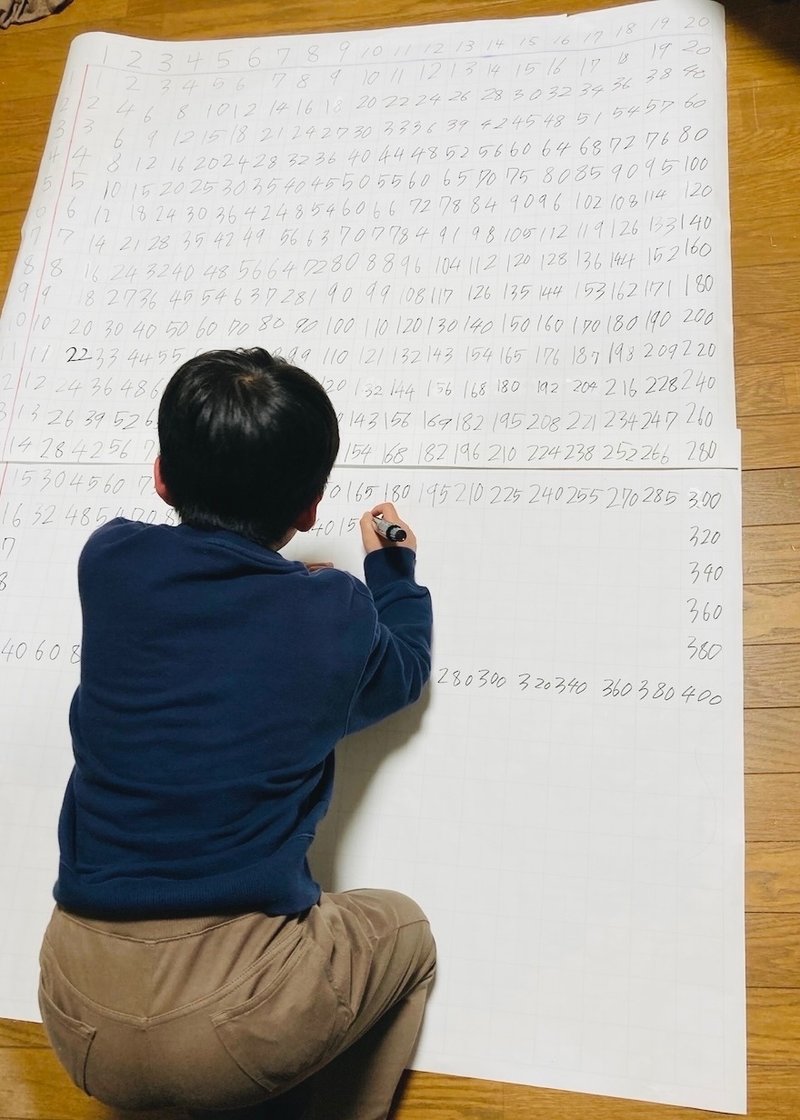 1 2 3 4 5 6 7 8 9 10 11 12 13 14 15 16 17 18 19 20
1 1 2 3 4 5 6 7 8 9 10 11 12 13 14 15 16 17 18 19 20
2 2 4 6 8 10 12 14 16 18 20 22 24 26 28 30 32 34 36 38 40
3 3 6 9 12 15 18 21 24 27 30 33 36 39 42 45 48 51 54 57 60
4 4 8 12 16 20 24 28 32 36 40 44 48 52 56 60 64 68 72 76 80
5 5 10 15 20 25 30 35 40 45 50 55 60 65 70 75 80 85 90 95 100
6 6 12 18 24 30 36 42 48 54 60 66 72 78 84 90 96 102 108 114 120
7 7 14 21 28 35 42 49 56 63 70 77 84 91 98 105 112 119 126 133 140
8 8 16 24 32 40 48 56 64 72 80 88 96 104 112 120 128 136 144 152 160
9 9 18 27 36 45 54 63 72 81 90 99 108 117 126 135 144 153 162 171 180
10 10 20 30 40 50 60 70 80 90 100 110 120 130 140 150 160 170 180 190 200
11 11 22 33 44 55 99 110 121 132 143 154 165 176 187 193 209 220
12 24 36 48 132 144 156 168 180 192 204 216 228 240
13 26 39 52 143 156 169 182 195 208 221 234 247 260
14 28 42 56 154 168 182 196 210 224 238 252 266 280
15 30 45 60 165 180 195 210 225 240 255 270 285 300
16 32 48 320
340
360
380
40 60 280 300 320 340 360 380 400